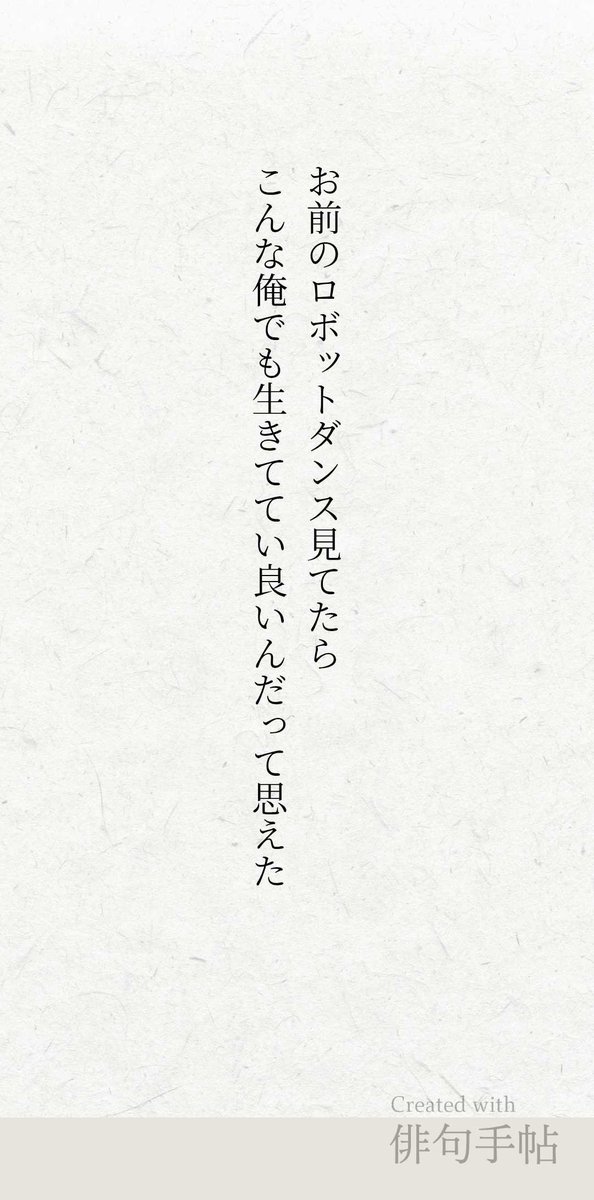 お前のロボットダンス見てたら
こんな俺でも生きててい良いんだって思えた
Created with
俳句手帖